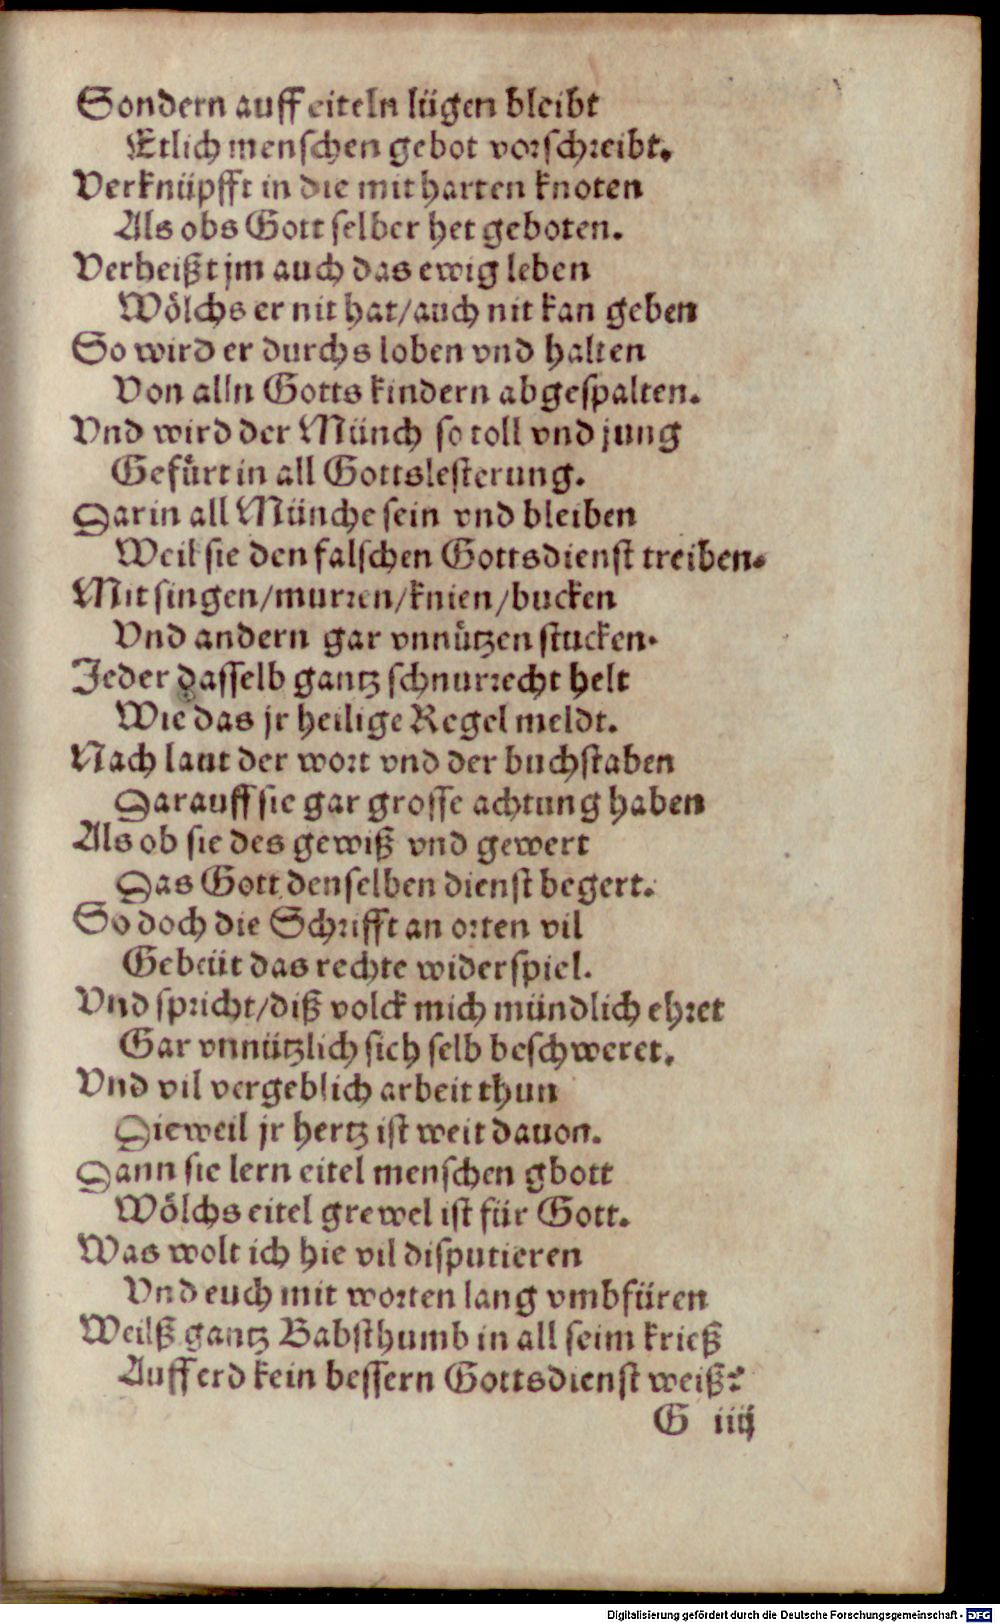 Sondern auff eiteln lügen bleibt
Etlich menschen gebot vorschreibt.
Verknüpfft in die mit harten knoten
Als obs Gott selber het geboten.
Verheißt jm auch das ewig leben
Wölchs er nit hat/auch nit kan geben
So wird er durchs loben vnd halten
Von alln Gotts kindern abgespalten.
Vnd wird der Münch so toll vnd jung
Gefürt in all Gottslesterung.
Darin all Münche sein vnd bleiben
Weil sie den falschen Gottsdienst treiben.
Mit singen/murren/knien/bucken
Vnd andern gar vnnützen stucken.
Jeder dasselb gantz schnurrecht helt
Wie das jr heilige Regel meldt.
Nach laut der wort vnd der buchstaben
Darauff sie gar grosse achtung haben
Als ob sie des gewiß vnd gewert
Das Gott denselben dienst begert.
So doch die Schrifft an orten vil
Gebeüt das rechte widerspiel.
Vnd spricht/diß volck mich mündlich ehret
Gar vnnützlich sich selb beschweret.
Vnd vil vergeblich arbeit thun
Dieweil jr hertz ist weit dauon.
Dann sie lern eitel menschen gbott
Wölchs eitel grewel ist für Gott.
Was wolt ich hie vil disputieren
Vnd euch mit worten lang vmbfüren
Weilß gantz Babsthumb in all seim krieß
Auff erd kein bessern Gottsdienst weiß?
G iiij
Digitalisierung gefördert durch die Deutsche Forschungsgemeinschaft - DFG